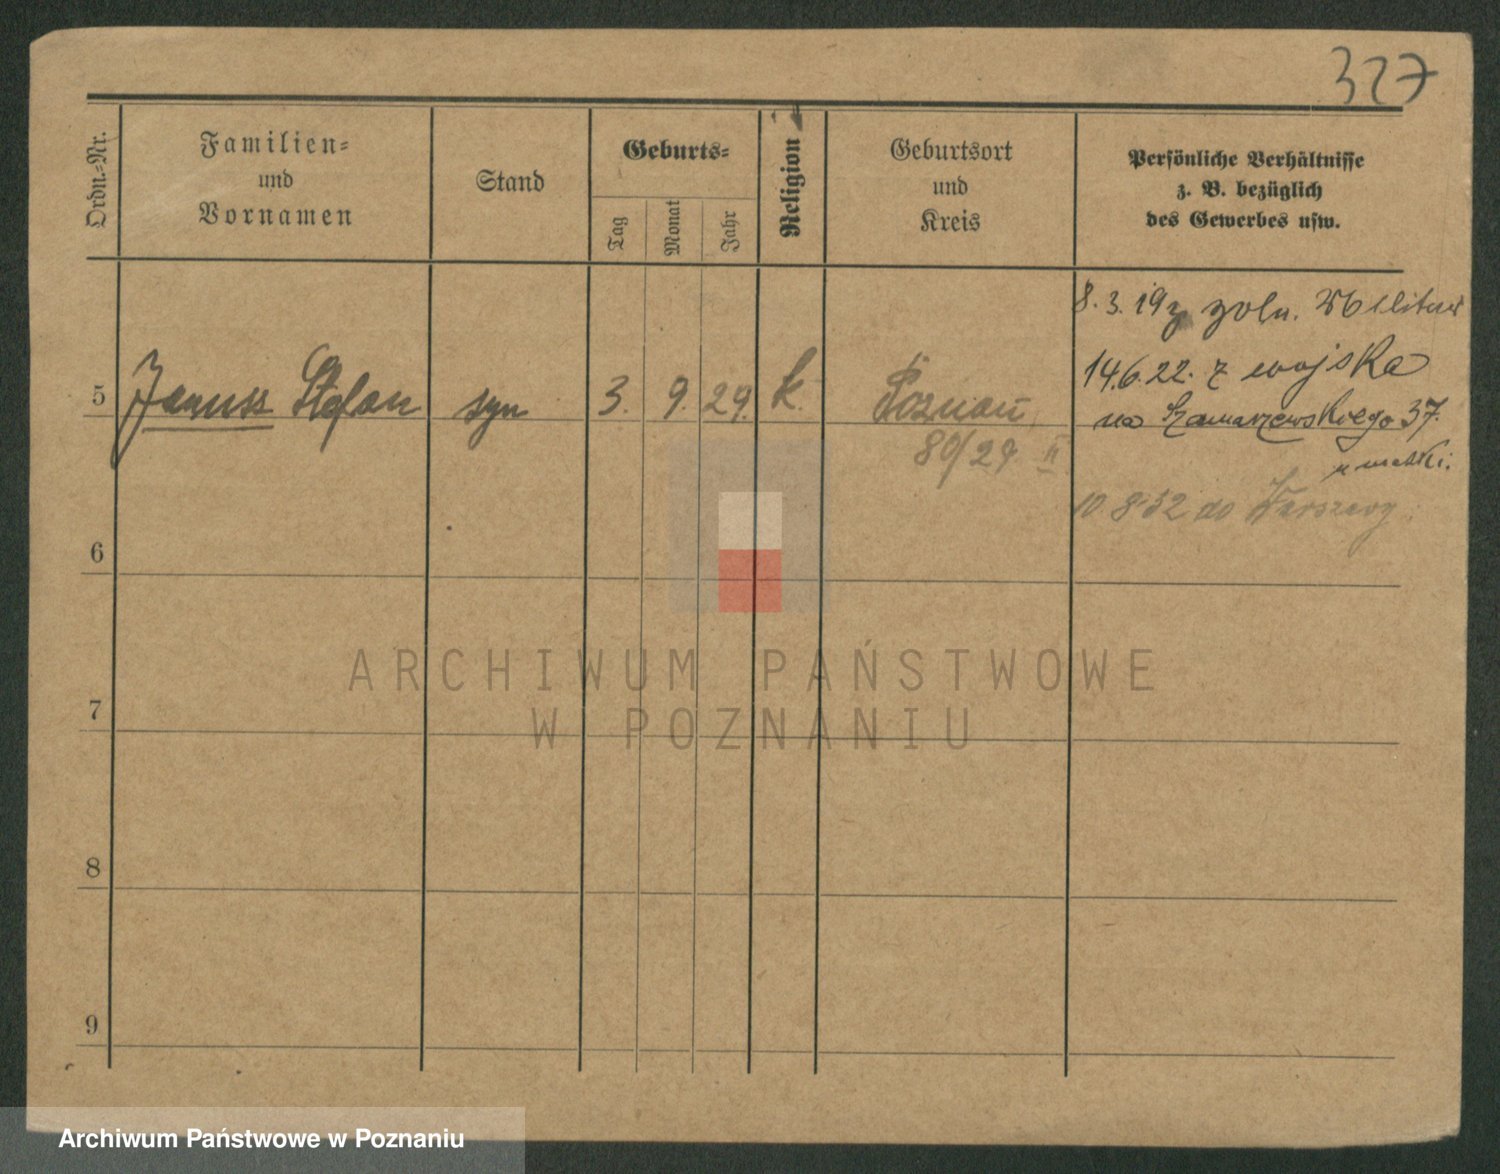 327
Ordn.-Nr.
Familien-
und
Vornamen
Stand
Geburts-
Tag
Monat
Jahr
Religion
Geburtsort
und
Kreis
Persönliche Verhältnisse
z. B. bezüglich
des Gewerbes usw.
8. 3. 19 z żoln. Militar
14.6.22. z wojska
5 Janusz Stefan syn 3. 9. 29. k. Poznań
na Szamarzewskiego 37.
80/29 II
u matki.
10 8 32 do Warszawy
6
7
8
9
ARCHIWUM PAŃSTWOWE
W POZNANIU
Archiwum Państwowe w Poznaniu